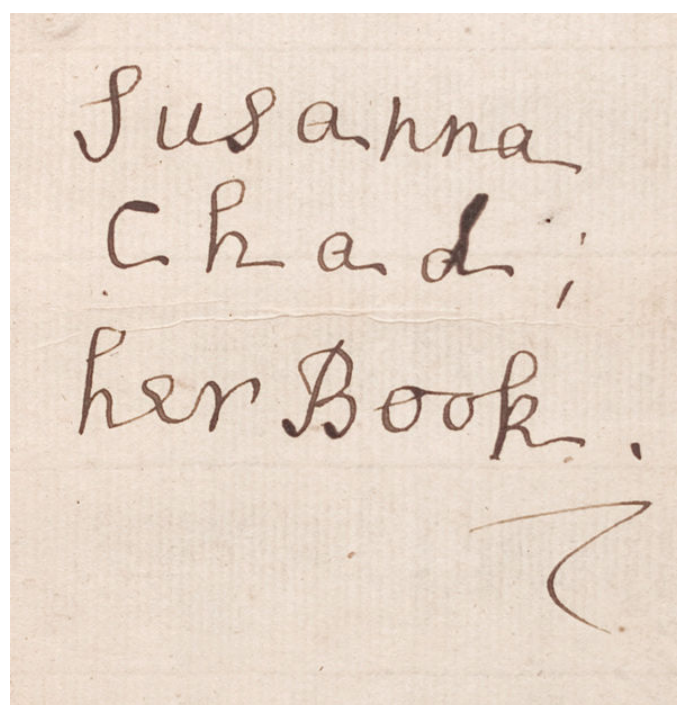 Susanna
Chad;
her Book.